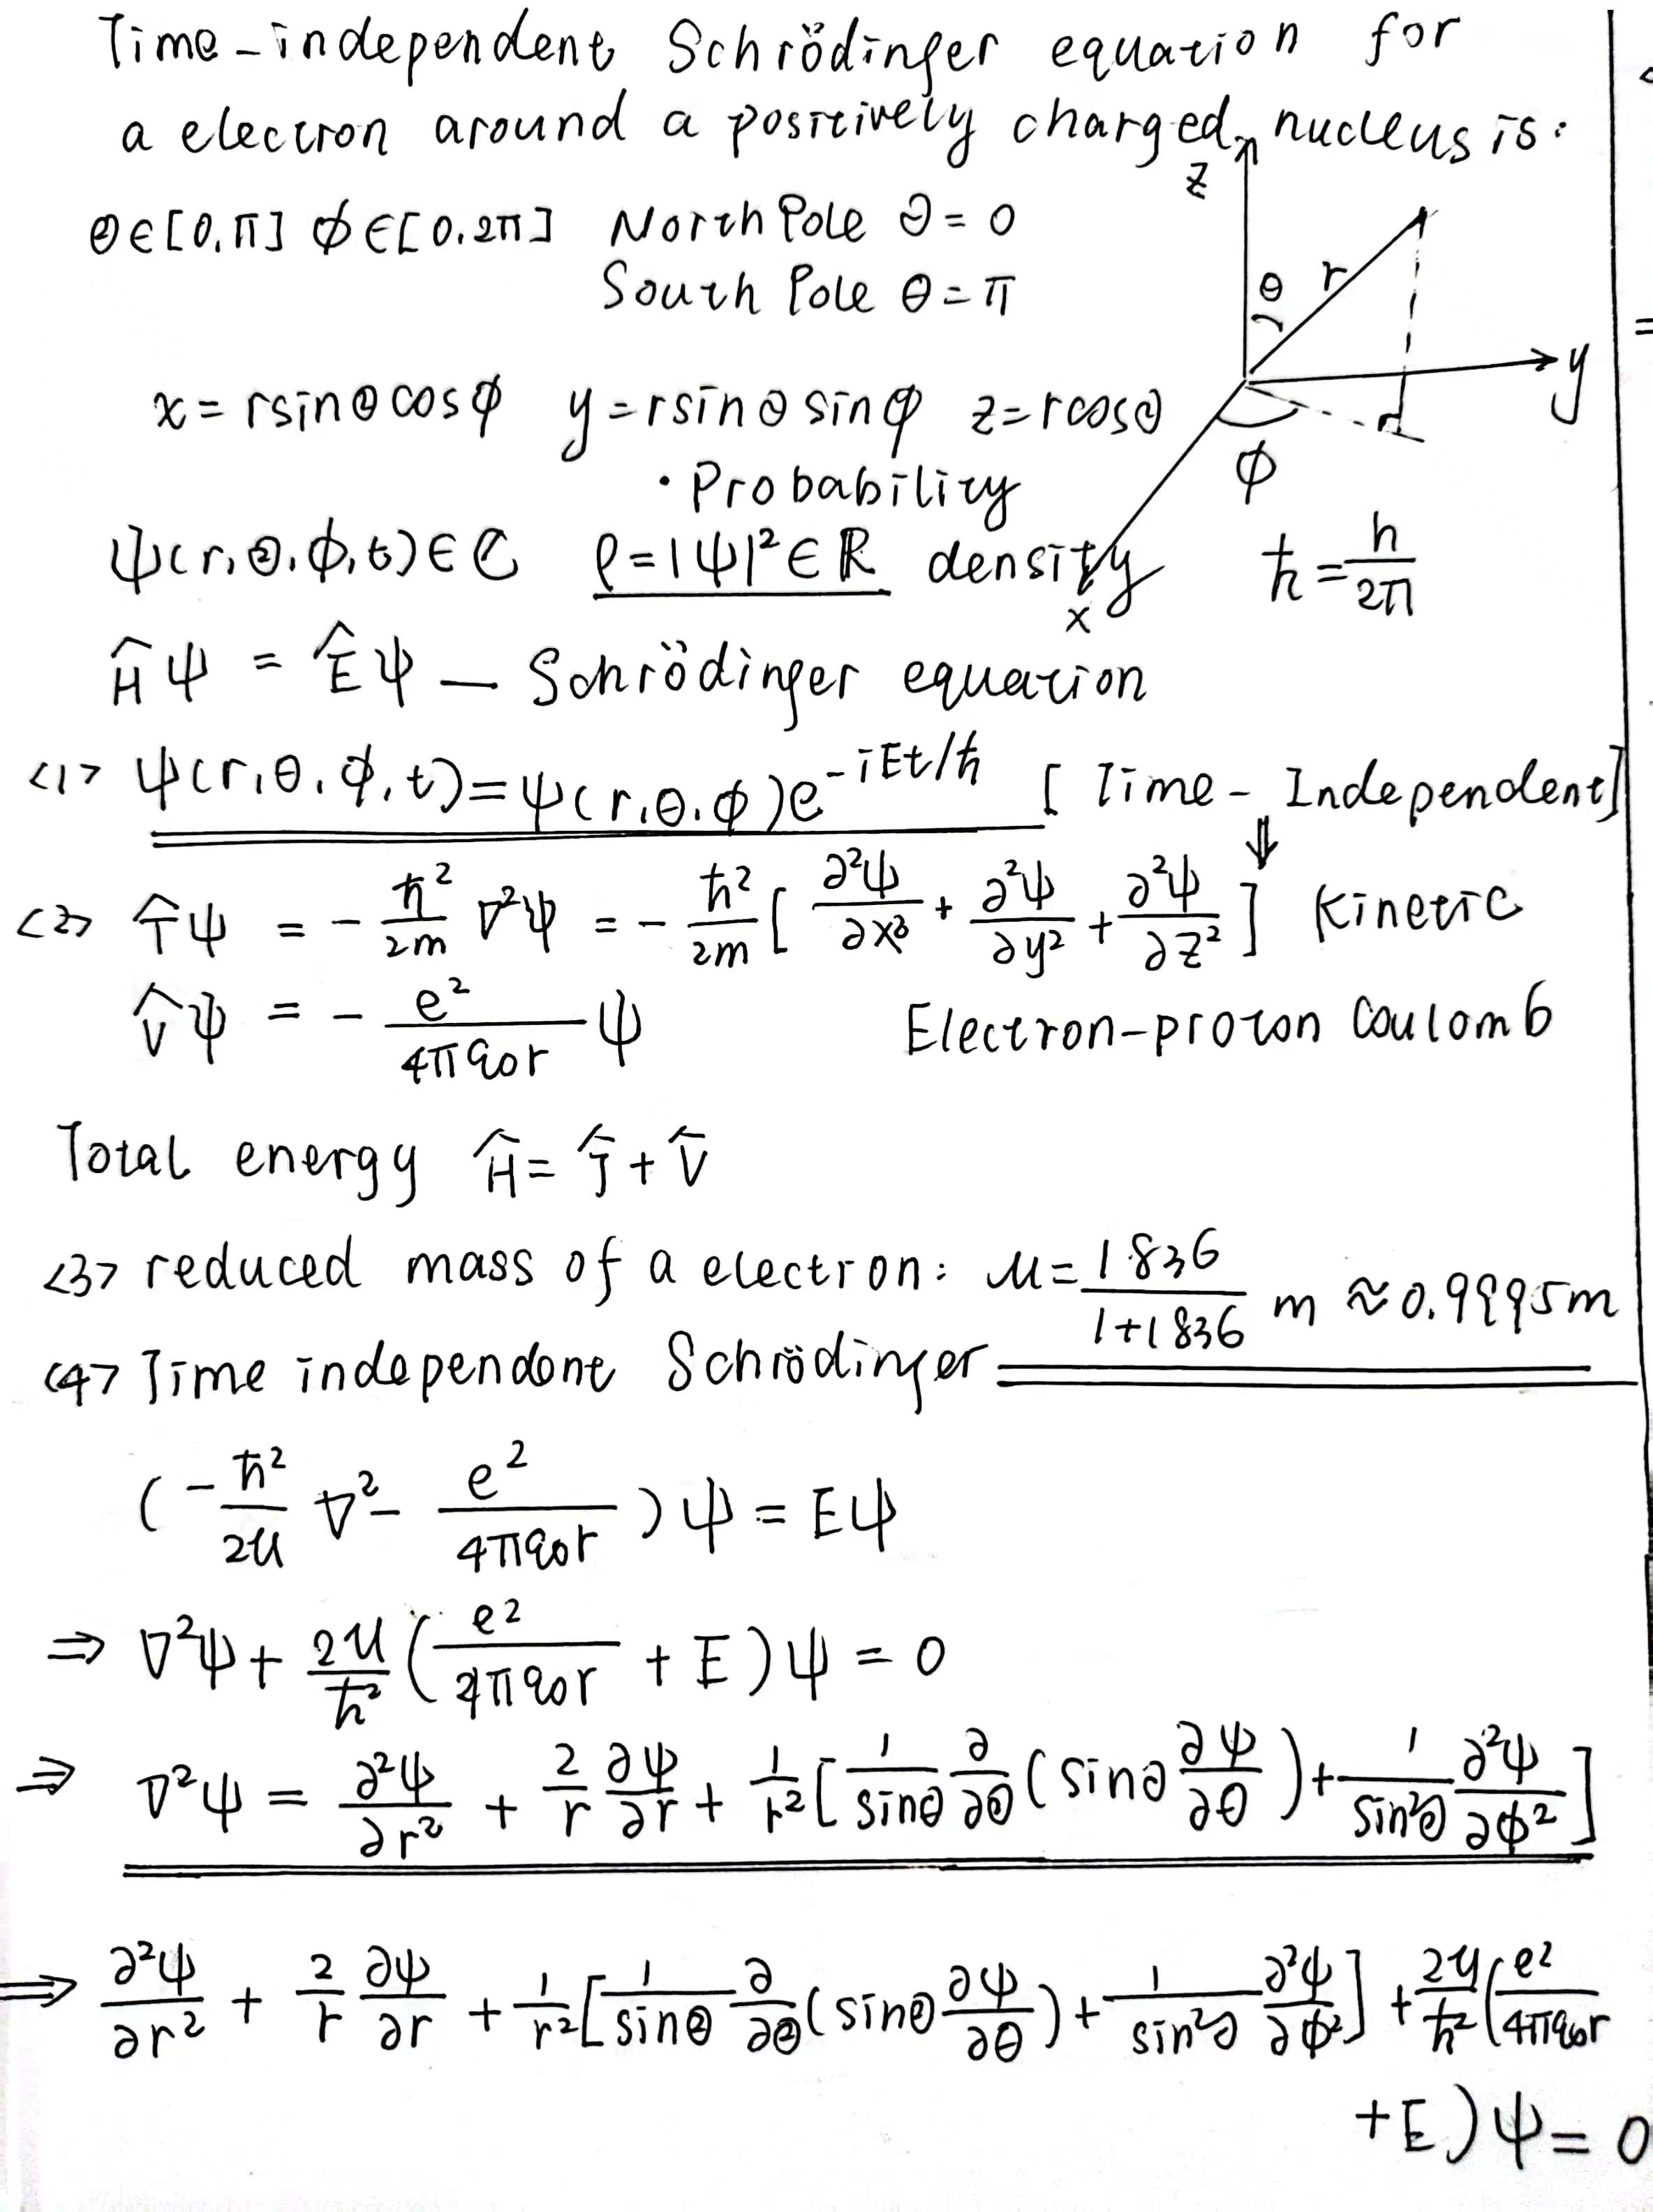 Time-independent Schrödinger equation for
a electron around a positively charged nucleus is:
θ∈[0,π] ϕ∈[0,2π] North Pole θ=0
South Pole θ=π
z
θ r
y
x=rsinθcosϕ y=rsinθsinϕ z=rcosθ
ϕ
· Probability
ψ(r,θ,ϕ,t)∈C ρ=|ψ|²∈ℝ density
x
ħ=h/2π
Ĥψ = Êψ — Schrödinger equation
<1> ψ(r,θ,ϕ,t)=ψ(r,θ,ϕ)e^(-iEt/ħ) [Time-Independent]
⇓
<2> T̂ψ = -ħ²/2m ∇²ψ = -ħ²/2m [∂²ψ/∂x² + ∂²ψ/∂y² + ∂²ψ/∂z²] Kinetic
V̂ψ = - e²/4πε0r ψ Electron-proton Coulomb
Total energy Ĥ=T̂+V̂
<3> reduced mass of a electron: μ=1836/1+1836 m ≈0.9995m
<4> Time independent Schrödinger
(-ħ²/2μ ∇² - e²/4πε0r)ψ = Eψ
⇒ ∇²ψ + 2μ/ħ² (e²/4πε0r + E)ψ = 0
⇒ ∇²ψ = ∂²ψ/∂r² + 2/r ∂ψ/∂r + 1/r² [1/sinθ ∂/∂θ (sinθ ∂ψ/∂θ) + 1/sin²θ ∂²ψ/∂ϕ²]
⇒ ∂²ψ/∂r² + 2/r ∂ψ/∂r + 1/r² [1/sinθ ∂/∂θ (sinθ ∂ψ/∂θ) + 1/sin²θ ∂²ψ/∂ϕ²] + 2μ/ħ² (e²/4πε0r
+E)ψ=0